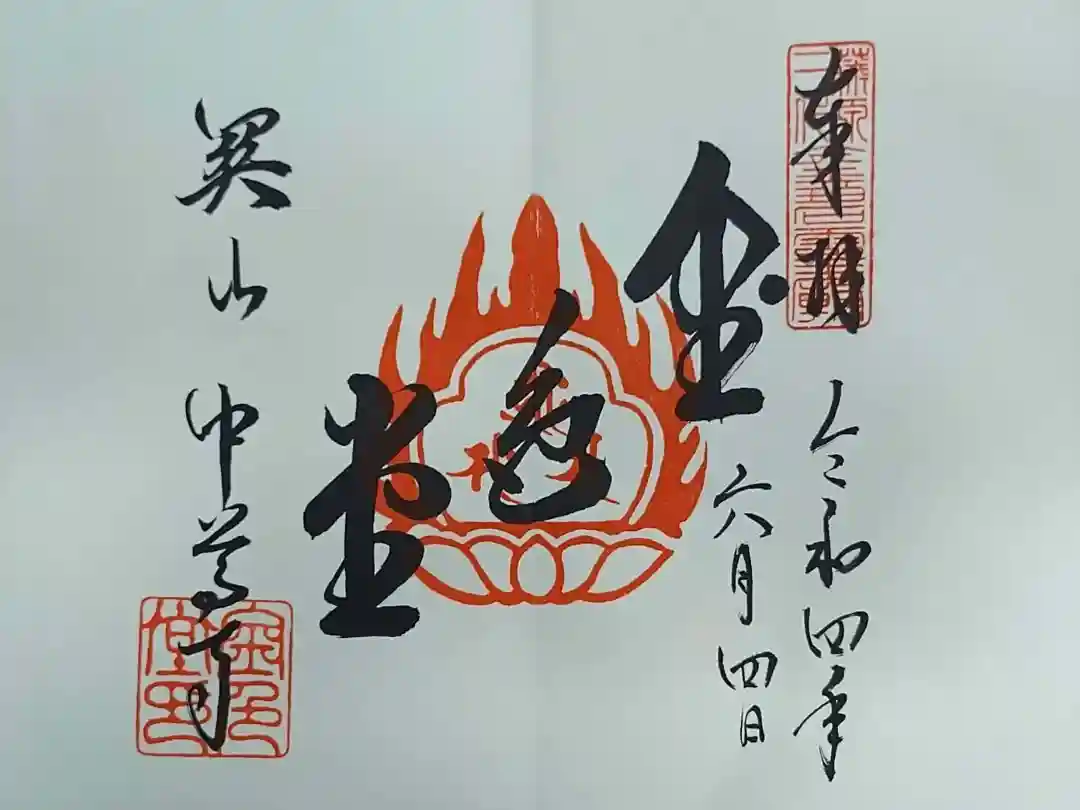 奉拝
令和四年
六月四日
金色堂
関山 中尊寺
金色堂印